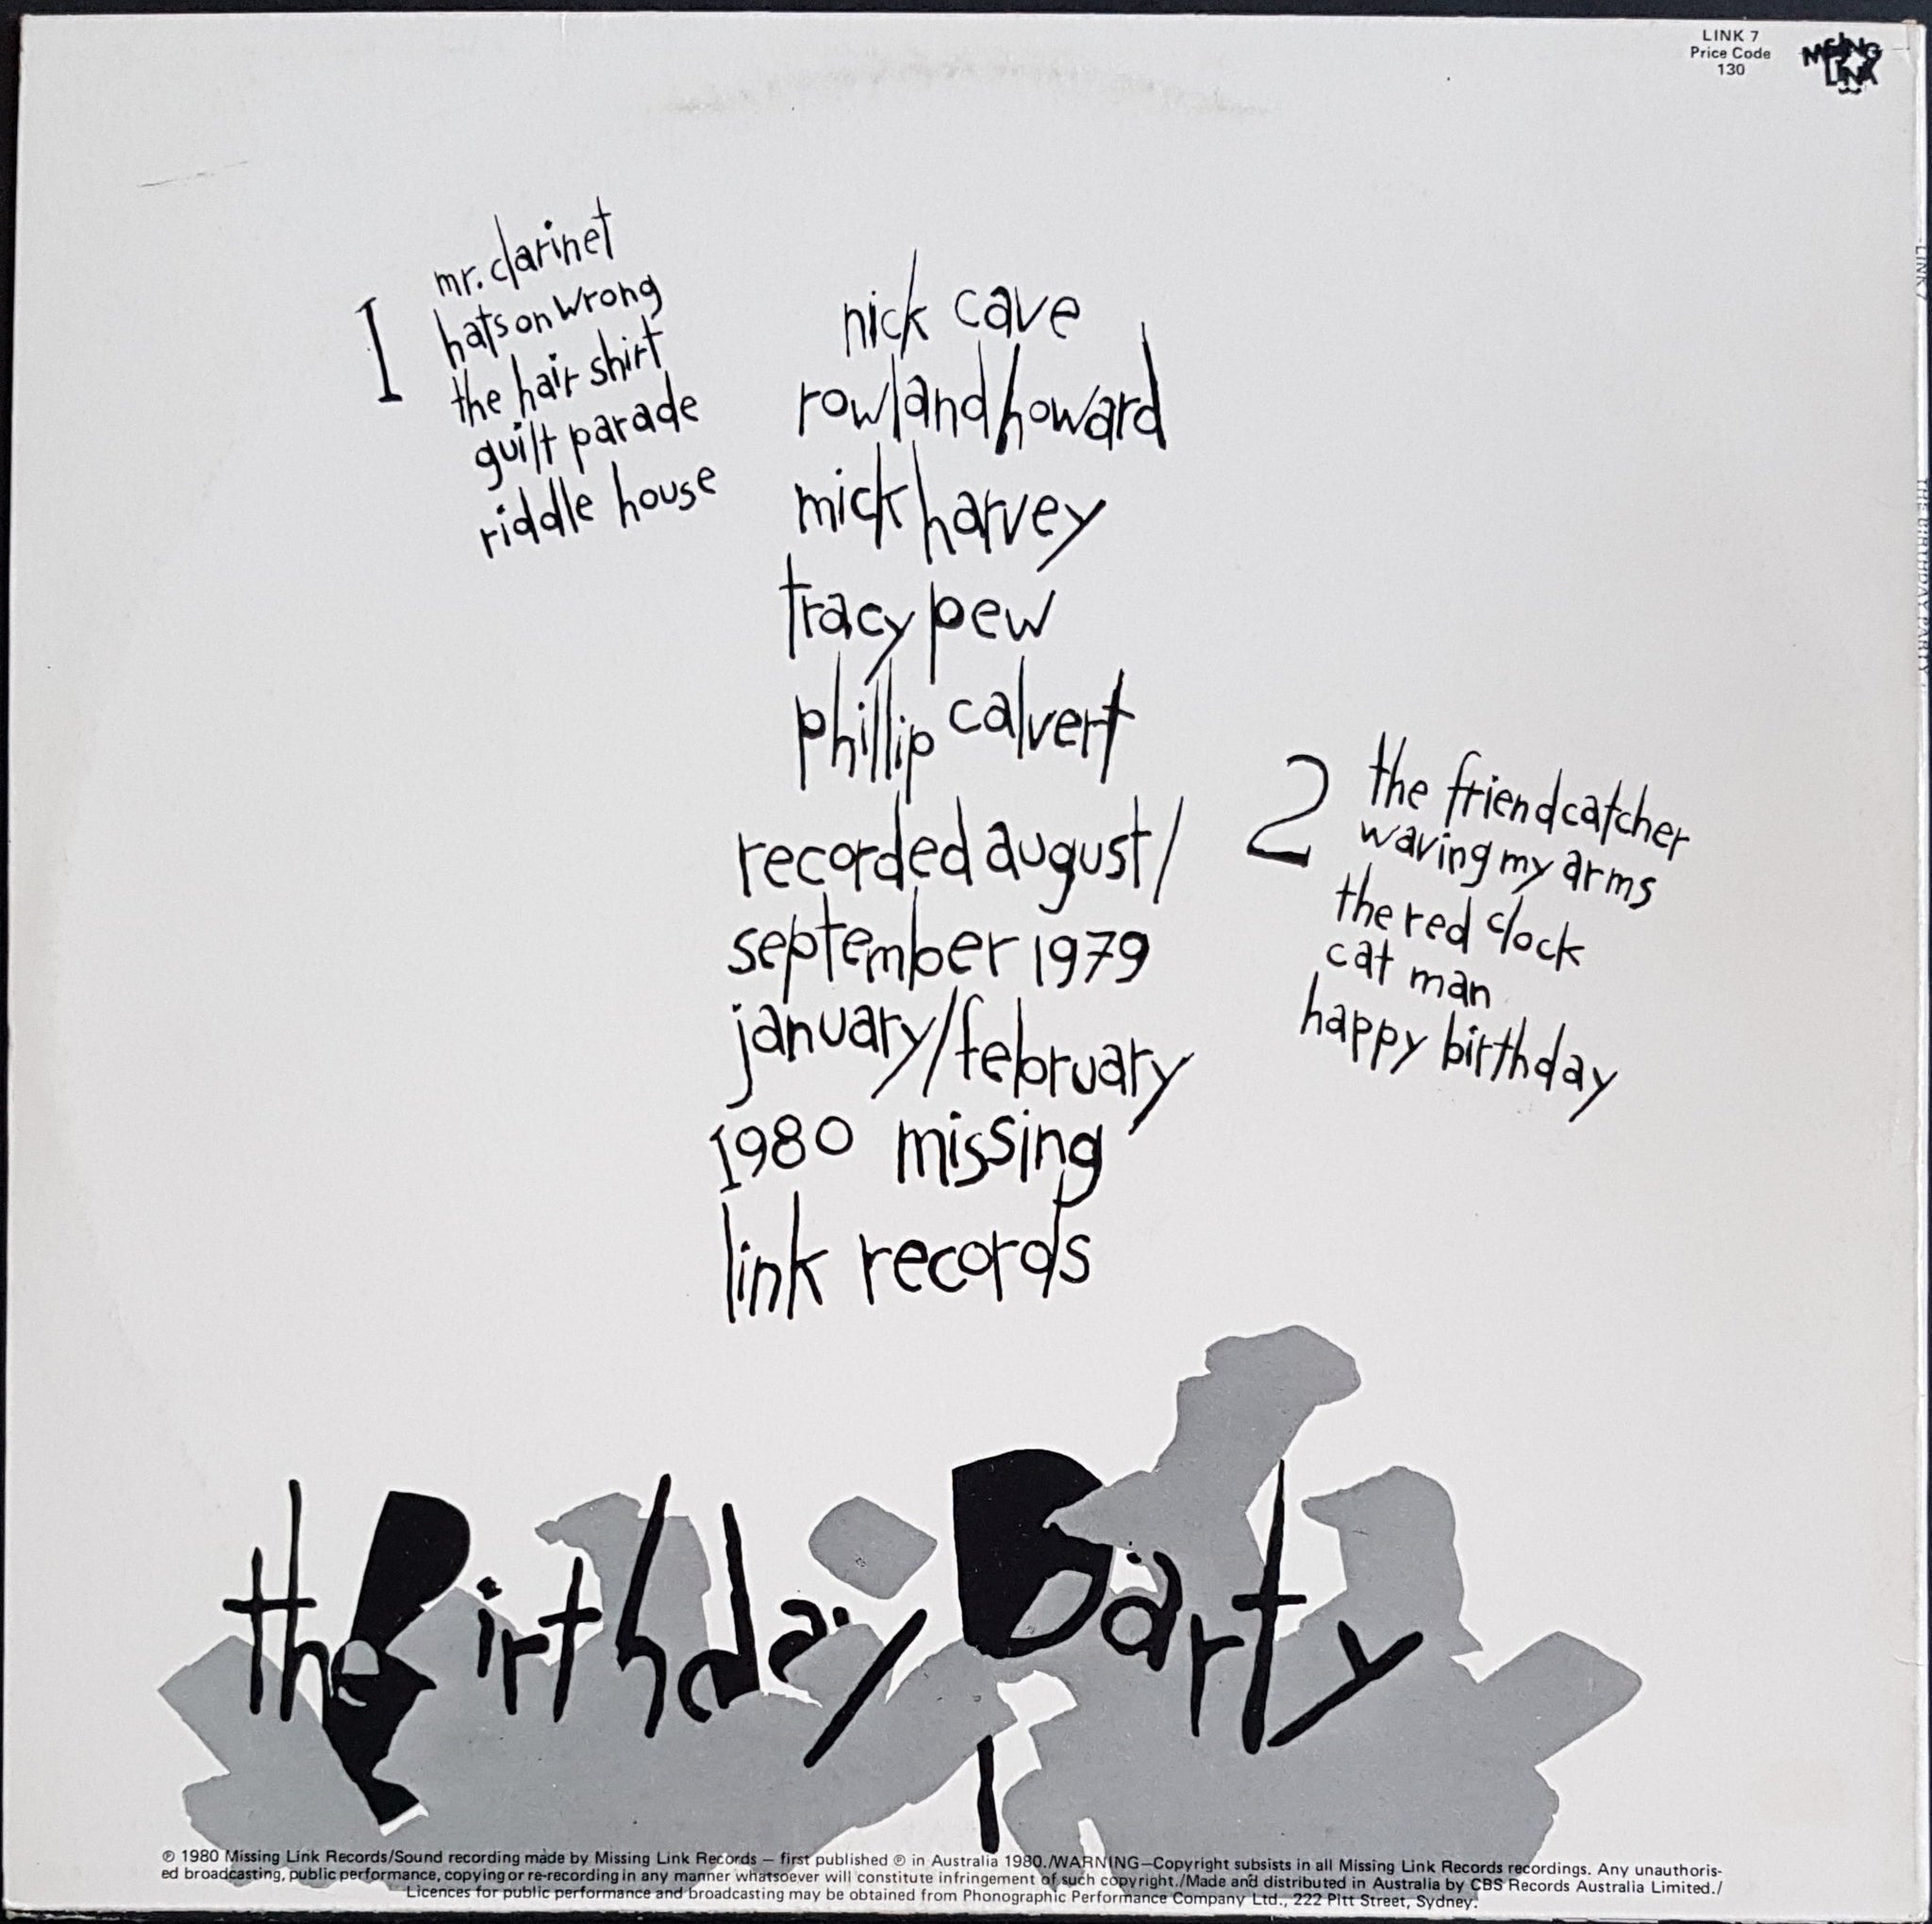 LINK 7
Price Code
130
MISSING
LINK
1
mr. clarinet
hats on wrong
the hair shirt
guilt parade
riddle house
nick cave
rowland howard
mick harvey
tracy pew
phillip calvert
recorded august/
september 1979
january/february
1980 missing
link records
2
the friendcatcher
waving my arms
the red clock
cat man
happy birthday
the Birthday Party
℗ 1980 Missing Link Records/Sound recording made by Missing Link Records — first published ℗ in Australia 1980./WARNING—Copyright subsists in all Missing Link Records recordings. Any unauthoris-
ed broadcasting, public performance, copying or re-recording in any manner whatsoever will constitute infringement of such copyright./Made and distributed in Australia by CBS Records Australia Limited./
Licences for public performance and broadcasting may be obtained from Phonographic Performance Company Ltd., 222 Pitt Street, Sydney.
LINK 7
THE BIRTHDAY PARTY